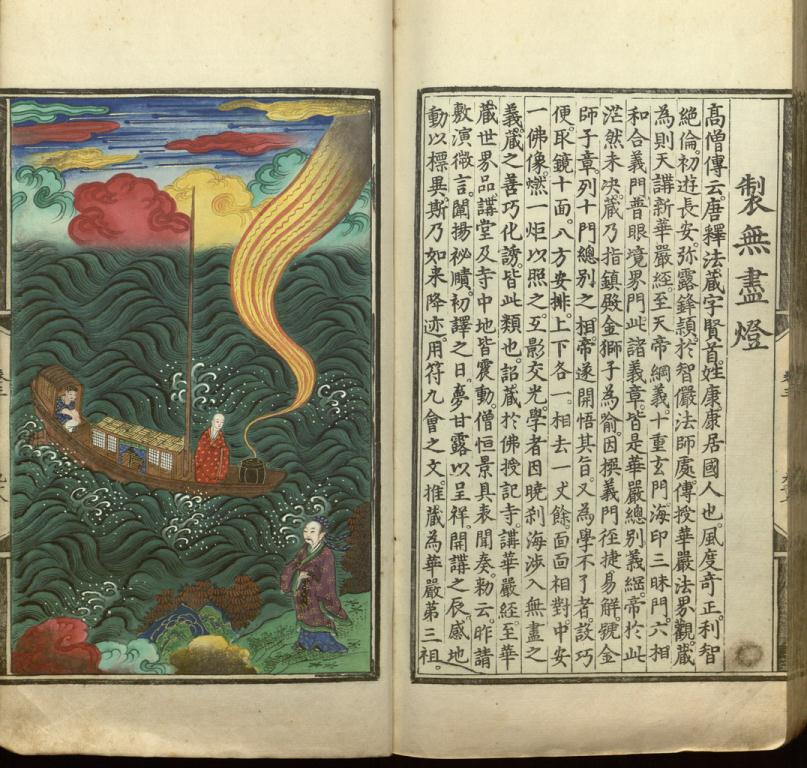 製無盡燈
高僧傳云。唐釋法藏字賢首。姓康。康居國人也。風度奇正。利智
絕倫。初遊長安。弥露鋒頴。於智儼法師處。傳授華嚴法界觀。藏
為則天講新華嚴經。至天帝綱義。十重玄門。海印三昧門。六相
和合義門。普眼境界門。此諸義章。皆是華嚴總別義經。帝於此
茫然未決。藏乃指鎮殿金獅子為喻。因撰義門徑捷易解。號金
師子章。列十門總別之相。帝遂開悟其旨。又為學不了者。設巧
便。取鏡十面。八方安排。上下各一。相去一丈餘。面面相對。中安
一佛像。燃一炬以照之。互影交光。學者因曉刹海涉入無盡之
義。藏之善巧化誘。皆此類也。詔藏於佛授記寺。講華嚴經。至華
藏世界品。講堂及寺中地皆震動。僧恒景具表聞奏。勅云。昨請
敷演微言。闡揚祕賾。初譯之日。夢甘露以呈祥。開講之辰。感地
動以標異。斯乃如來降迹。用符九會之文。推藏為華嚴第三祖。